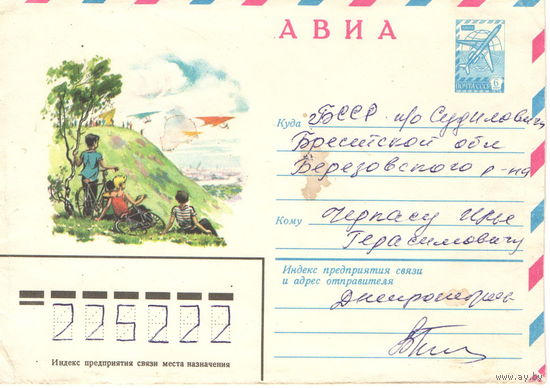 АВИА
ПОЧТА СССР
6
Куда БССР п/о Судиловичи
Брестской обл
Березовского р-на
Кому Черпасу
Герасимовичу
Индекс предприятия связи
и адрес отправителя
225222
Индекс предприятия связи места назначения
www.ay.by